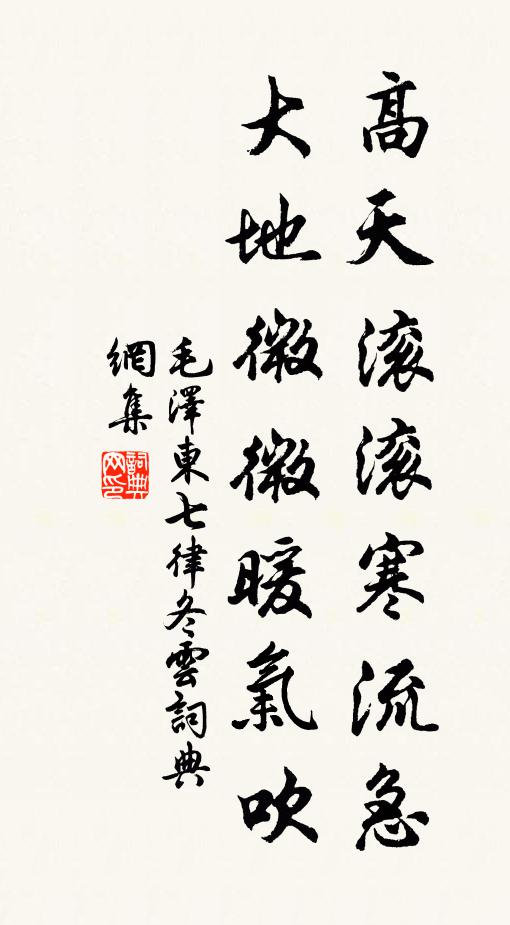 高天滚滚寒流急
大地微微暖氣吹
毛澤東七律冬雲詞典
網集
詞典
网印